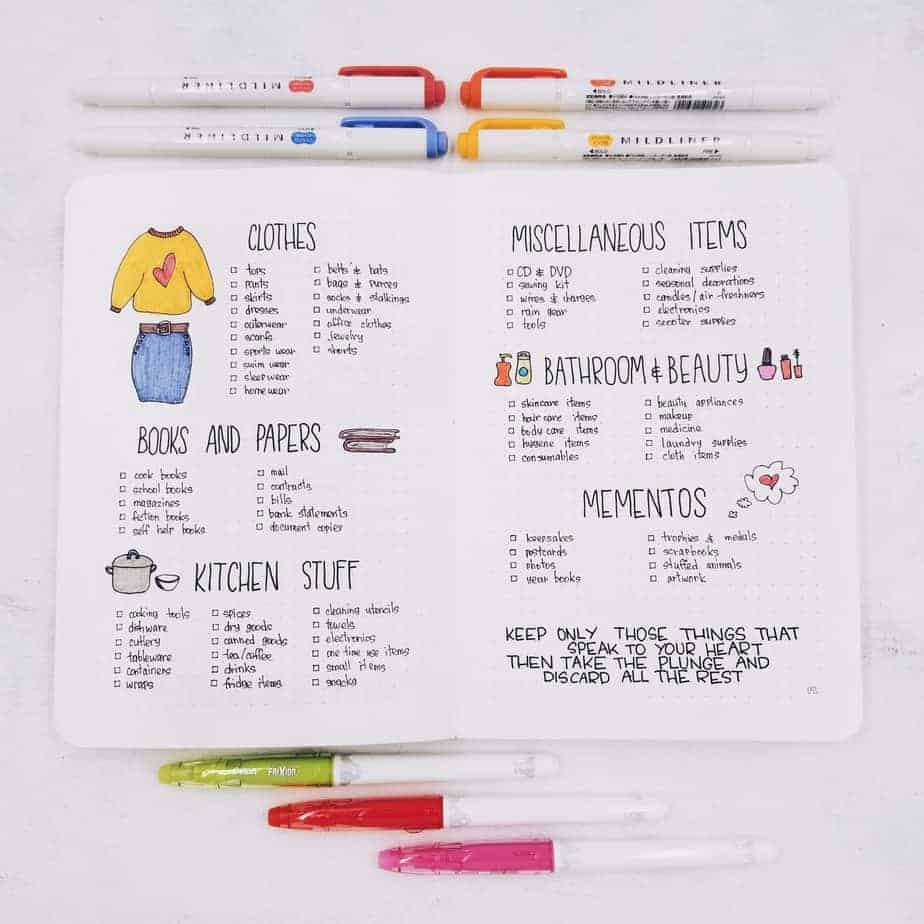 MILDLINER
MILDLINER
BOLD
MILDLINER
MILDLINER
BOLD
FINE
CLOTHES
tops
pants
skirts
dresses
outerwear
scarfs
sports wear
swim wear
sleepwear
homewear
belts & hats
bags & purces
socks & stalkings
underwear
office clothes
jewelry
shorts
BOOKS AND PAPERS
cook books
school books
magazines
fiction books
self help books
mail
contracts
bills
bank statements
document copies
KITCHEN STUFF
cooking tools
dishware
cutlery
tableware
containers
wraps
spices
dry goods
canned goods
tea/coffee
drinks
fridge items
cleaning utencils
towels
electronics
one time use items
small items
snacks
MISCELLANEOUS ITEMS
CD & DVD
sewing kit
wires & charges
rain gear
tools
cleaning supplies
seasonal decorations
candles/air-freshners
electronics
scooter supplies
BATHROOM & BEAUTY
skincare items
hair care items
body care items
hygene items
consumables
beauty appliances
makeup
medicine
laundry supplies
cloth items
MEMENTOS
keepsakes
postcards
photos
year books
trophies & medals
scrapbooks
stuffed animals
artwork
KEEP ONLY THOSE THINGS THAT
SPEAK TO YOUR HEART
THEN TAKE THE PLUNGE AND
DISCARD ALL THE REST
FRIXION